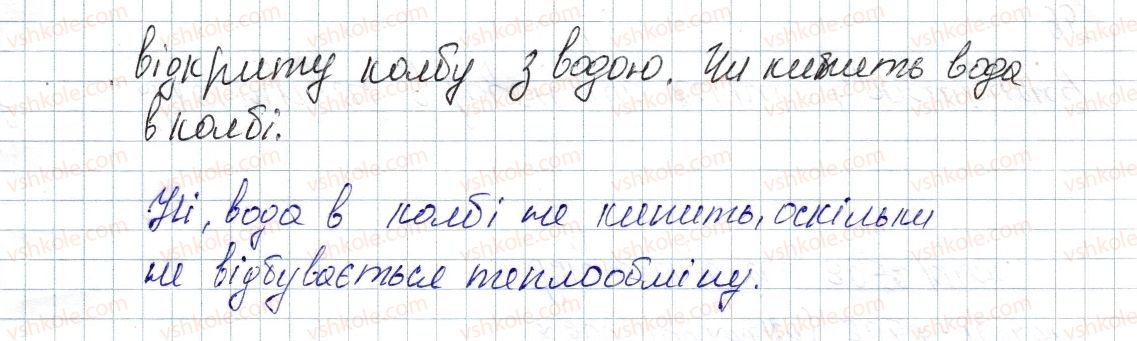 відкриту колбу з водою. Чи кипить вода
в колбі.
Ні, вода в колбі не кипить, оскільки
не відбувається теплообміну.